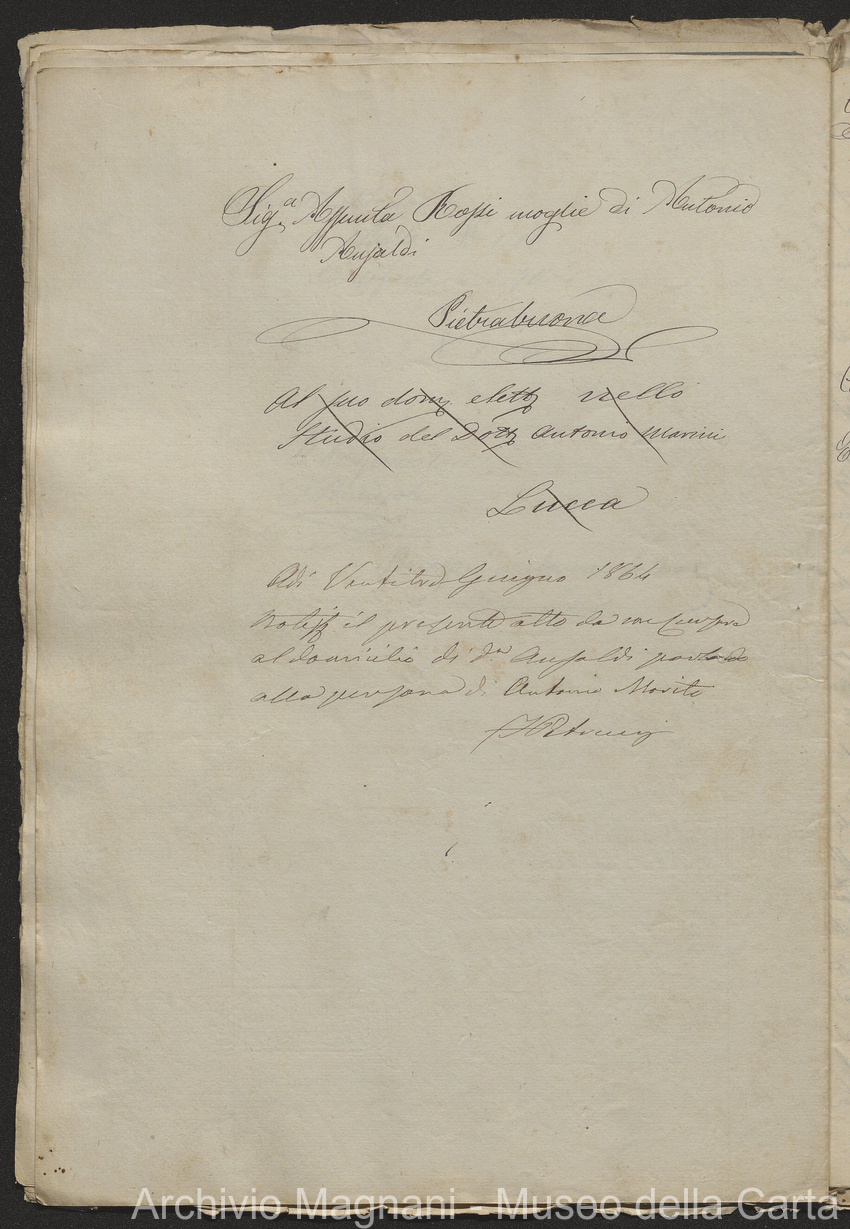 Sig.ª Assunta Rossi moglie di Antonio
Ansaldi
Pietrabuona
Al suo dom° elett° nello
Studio del Dott° Antonio Marini
Lucca
Adi Ventitré Giugno 1864
il presente atto da me
al domicilio di d.ª Ansaldi
alla persona di Antonio Marito
Archivio Magnani - Museo della Carta